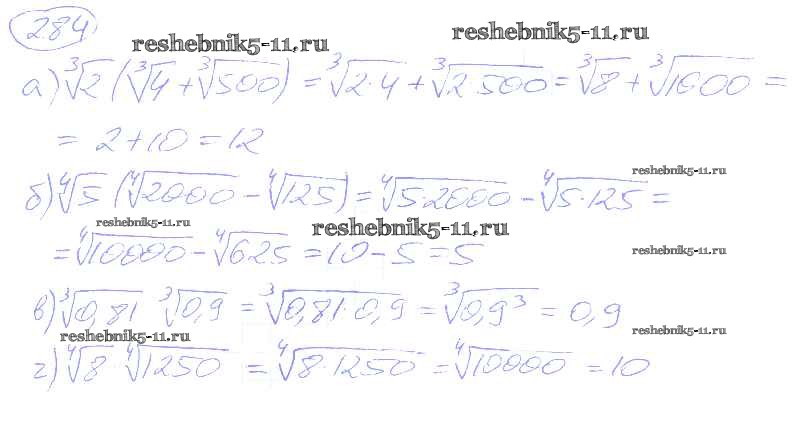 284
reshebnik5-11.ru reshebnik5-11.ru
а) ∛2 (∛4 + ∛500) = ∛2·4 + ∛2·500 = ∛8 + ∛1000 =
= 2 + 10 = 12
reshebnik5-11.ru
б) ∜5 (∜2000 - ∜125) = ∜5·2000 - ∜5·125 =
reshebnik5-11.ru reshebnik5-11.ru
= ∜10000 - ∜625 = 10 - 5 = 5
reshebnik5-11.ru
в) ∛0,81 ∛0,9 = ∛0,81·0,9 = ∛0,9³ = 0,9
reshebnik5-11.ru reshebnik5-11.ru
г) ∜8·∜1250 = ∜8·1250 = ∜10000 = 10